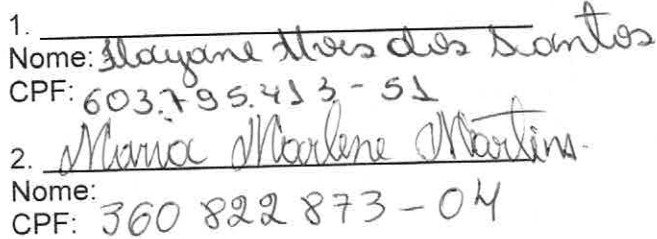 1.
Nome: Ilayane Alves dos Santos
CPF: 603.795.413-51
2. Maria Marlene Martins.
Nome:
CPF: 360 822 873-04